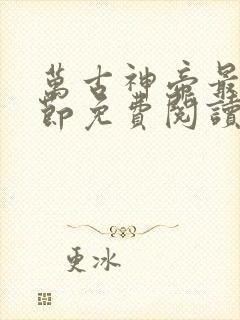 萬古神帝最
節免費閱讀
更冰